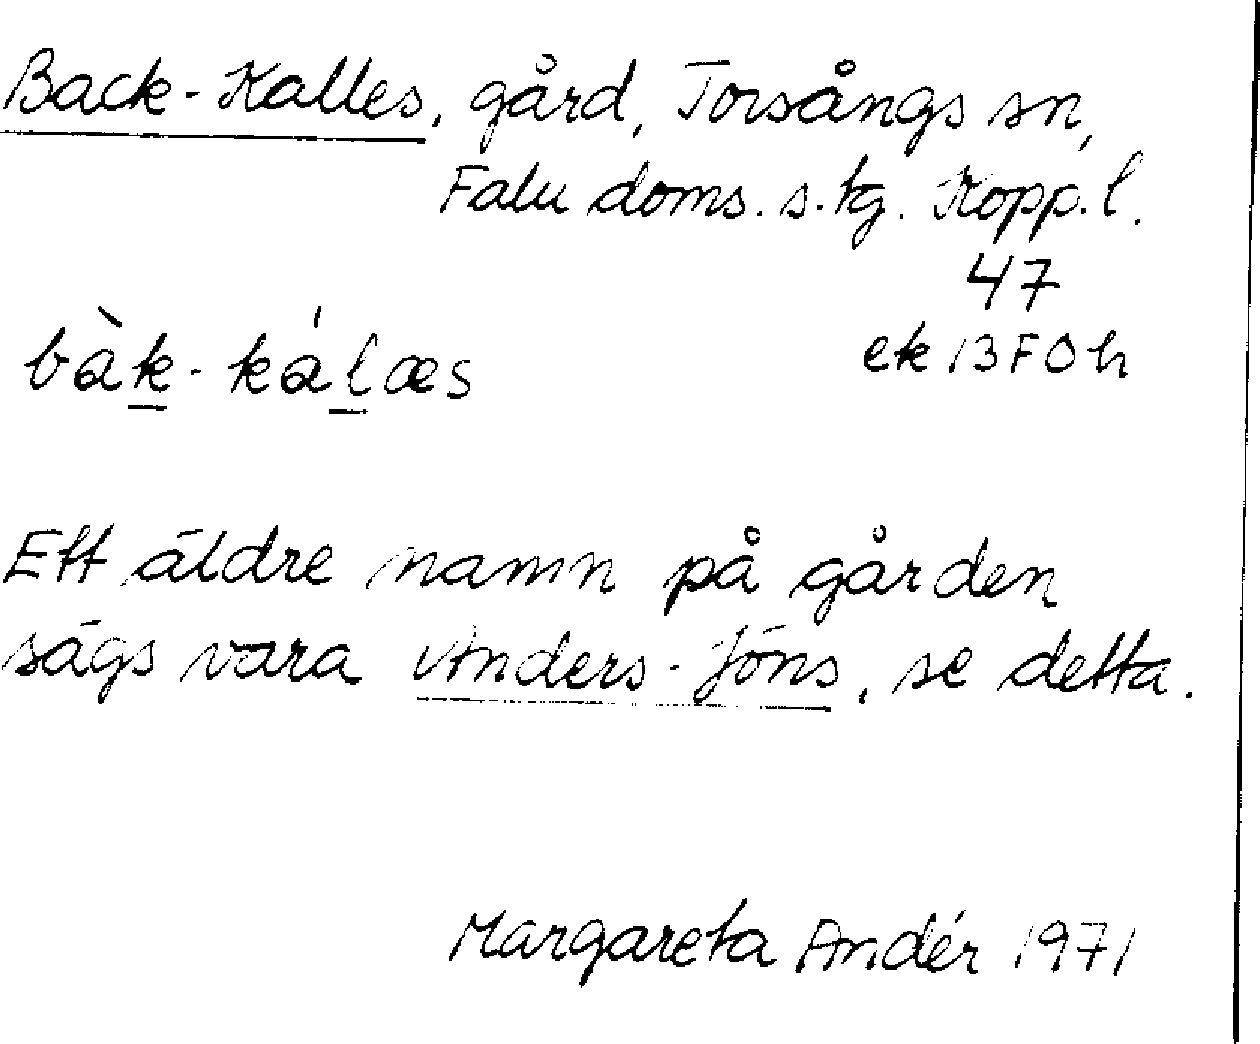 Back-Kalles, gård, Torsångs sn,
Falu doms. s. tg. Kopp. l.
47
bàk-kálæs
ek 13 F 0 h
Ett äldre namn på gården
sägs vara Anders-Jöns, se detta.
Margareta Andér 1971